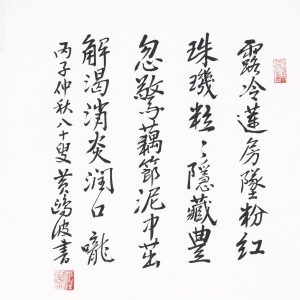 露冷蓮房墜粉紅
珠璣粒〻隱藏豐
忽驚藕節泥中茁
解渴消炎潤口嚨
丙子仲秋八十叟黃鷗波書